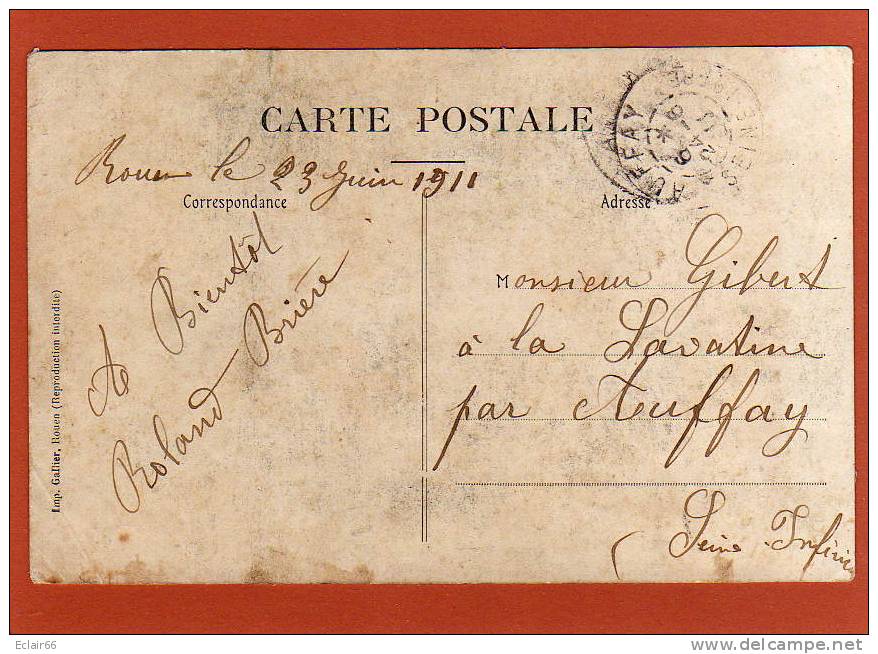 CARTE POSTALE
Rouen le 23 Juin 1911
Correspondance
Adresse
A Bientôt
Roland Brière
Monsieur Gibert
à la Lavatine
par Auffay
(Seine Inférie
Imp. Gallier, Rouen (Reproduction interdite)
AUFFAY
Eclair66
delcampe.net